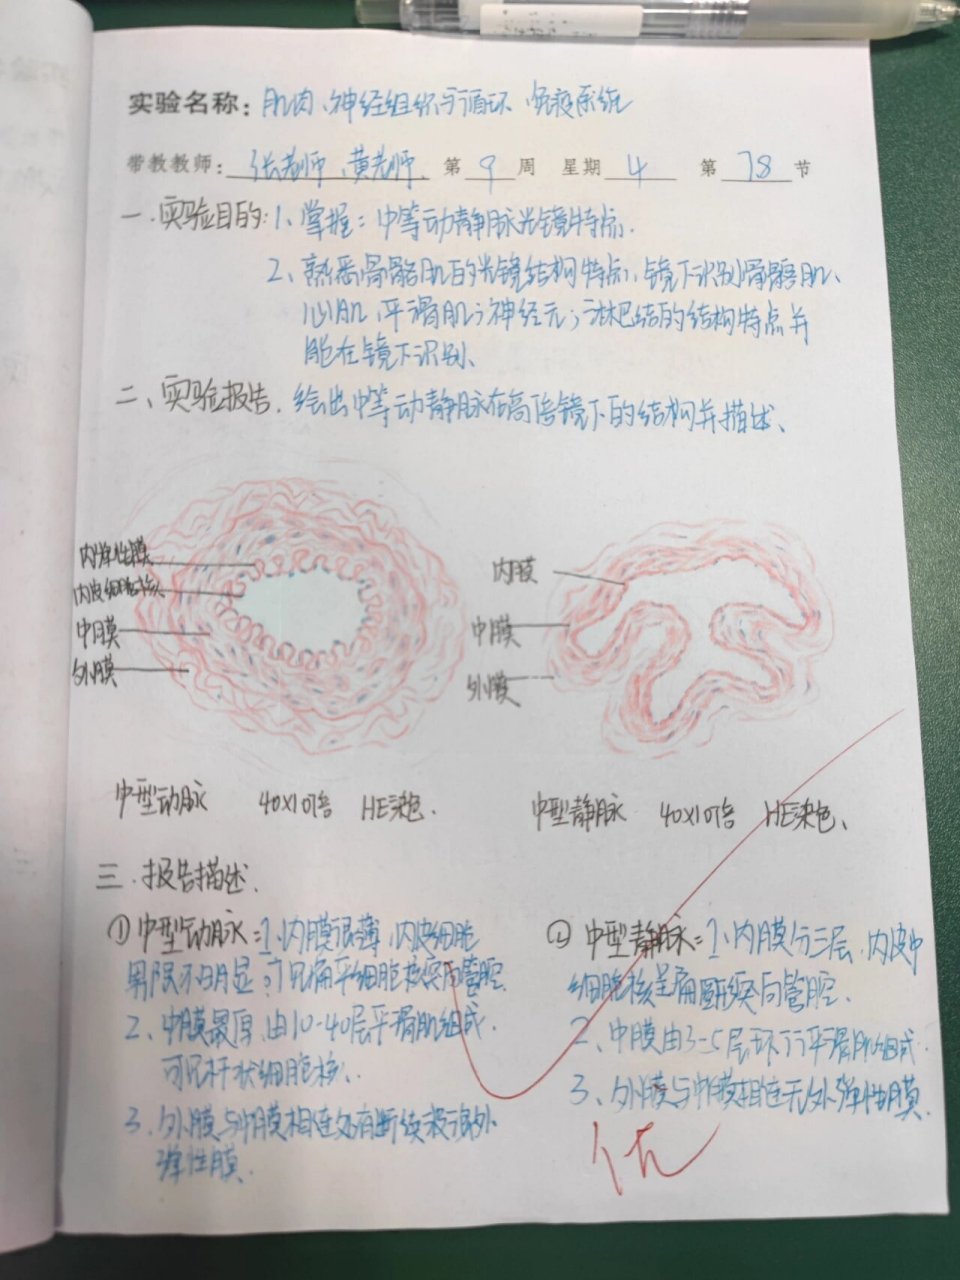 实验名称：肌肉、神经组织与循环、免疫系统
带教教师：张老师、黄老师、第9周 星期4 第78节
一、实验目的：1、掌握：中等动静脉光镜特点.
2、熟悉骨骼肌的光镜结构特点，镜下识别骨骼肌、
心肌、平滑肌；神经元；淋巴结的结构特点并
能在镜下识别、
二、实验报告、绘出中等动静脉在高倍镜下的结构并描述、
内弹性膜
内皮细胞核
中膜
外膜
内膜
中膜
外膜
中型动脉 40x10倍 HE染色.
中型静脉 40x10倍 HE染色、
三、报告描述.
①中型动脉：1、内膜很薄，内皮细胞
界限不明显；可见扁平细胞核突向管腔.
2、中膜最厚，由10-40层平滑肌组成.
可见杆状细胞核、
3、外膜与中膜相连处有断续 外
弹性膜.
②中型静脉：1、内膜分三层，内皮
细胞核呈扁 突向管腔.
2、中膜由3-5层环行平滑肌组成.
3、外膜与中膜相连无外弹性膜.
优